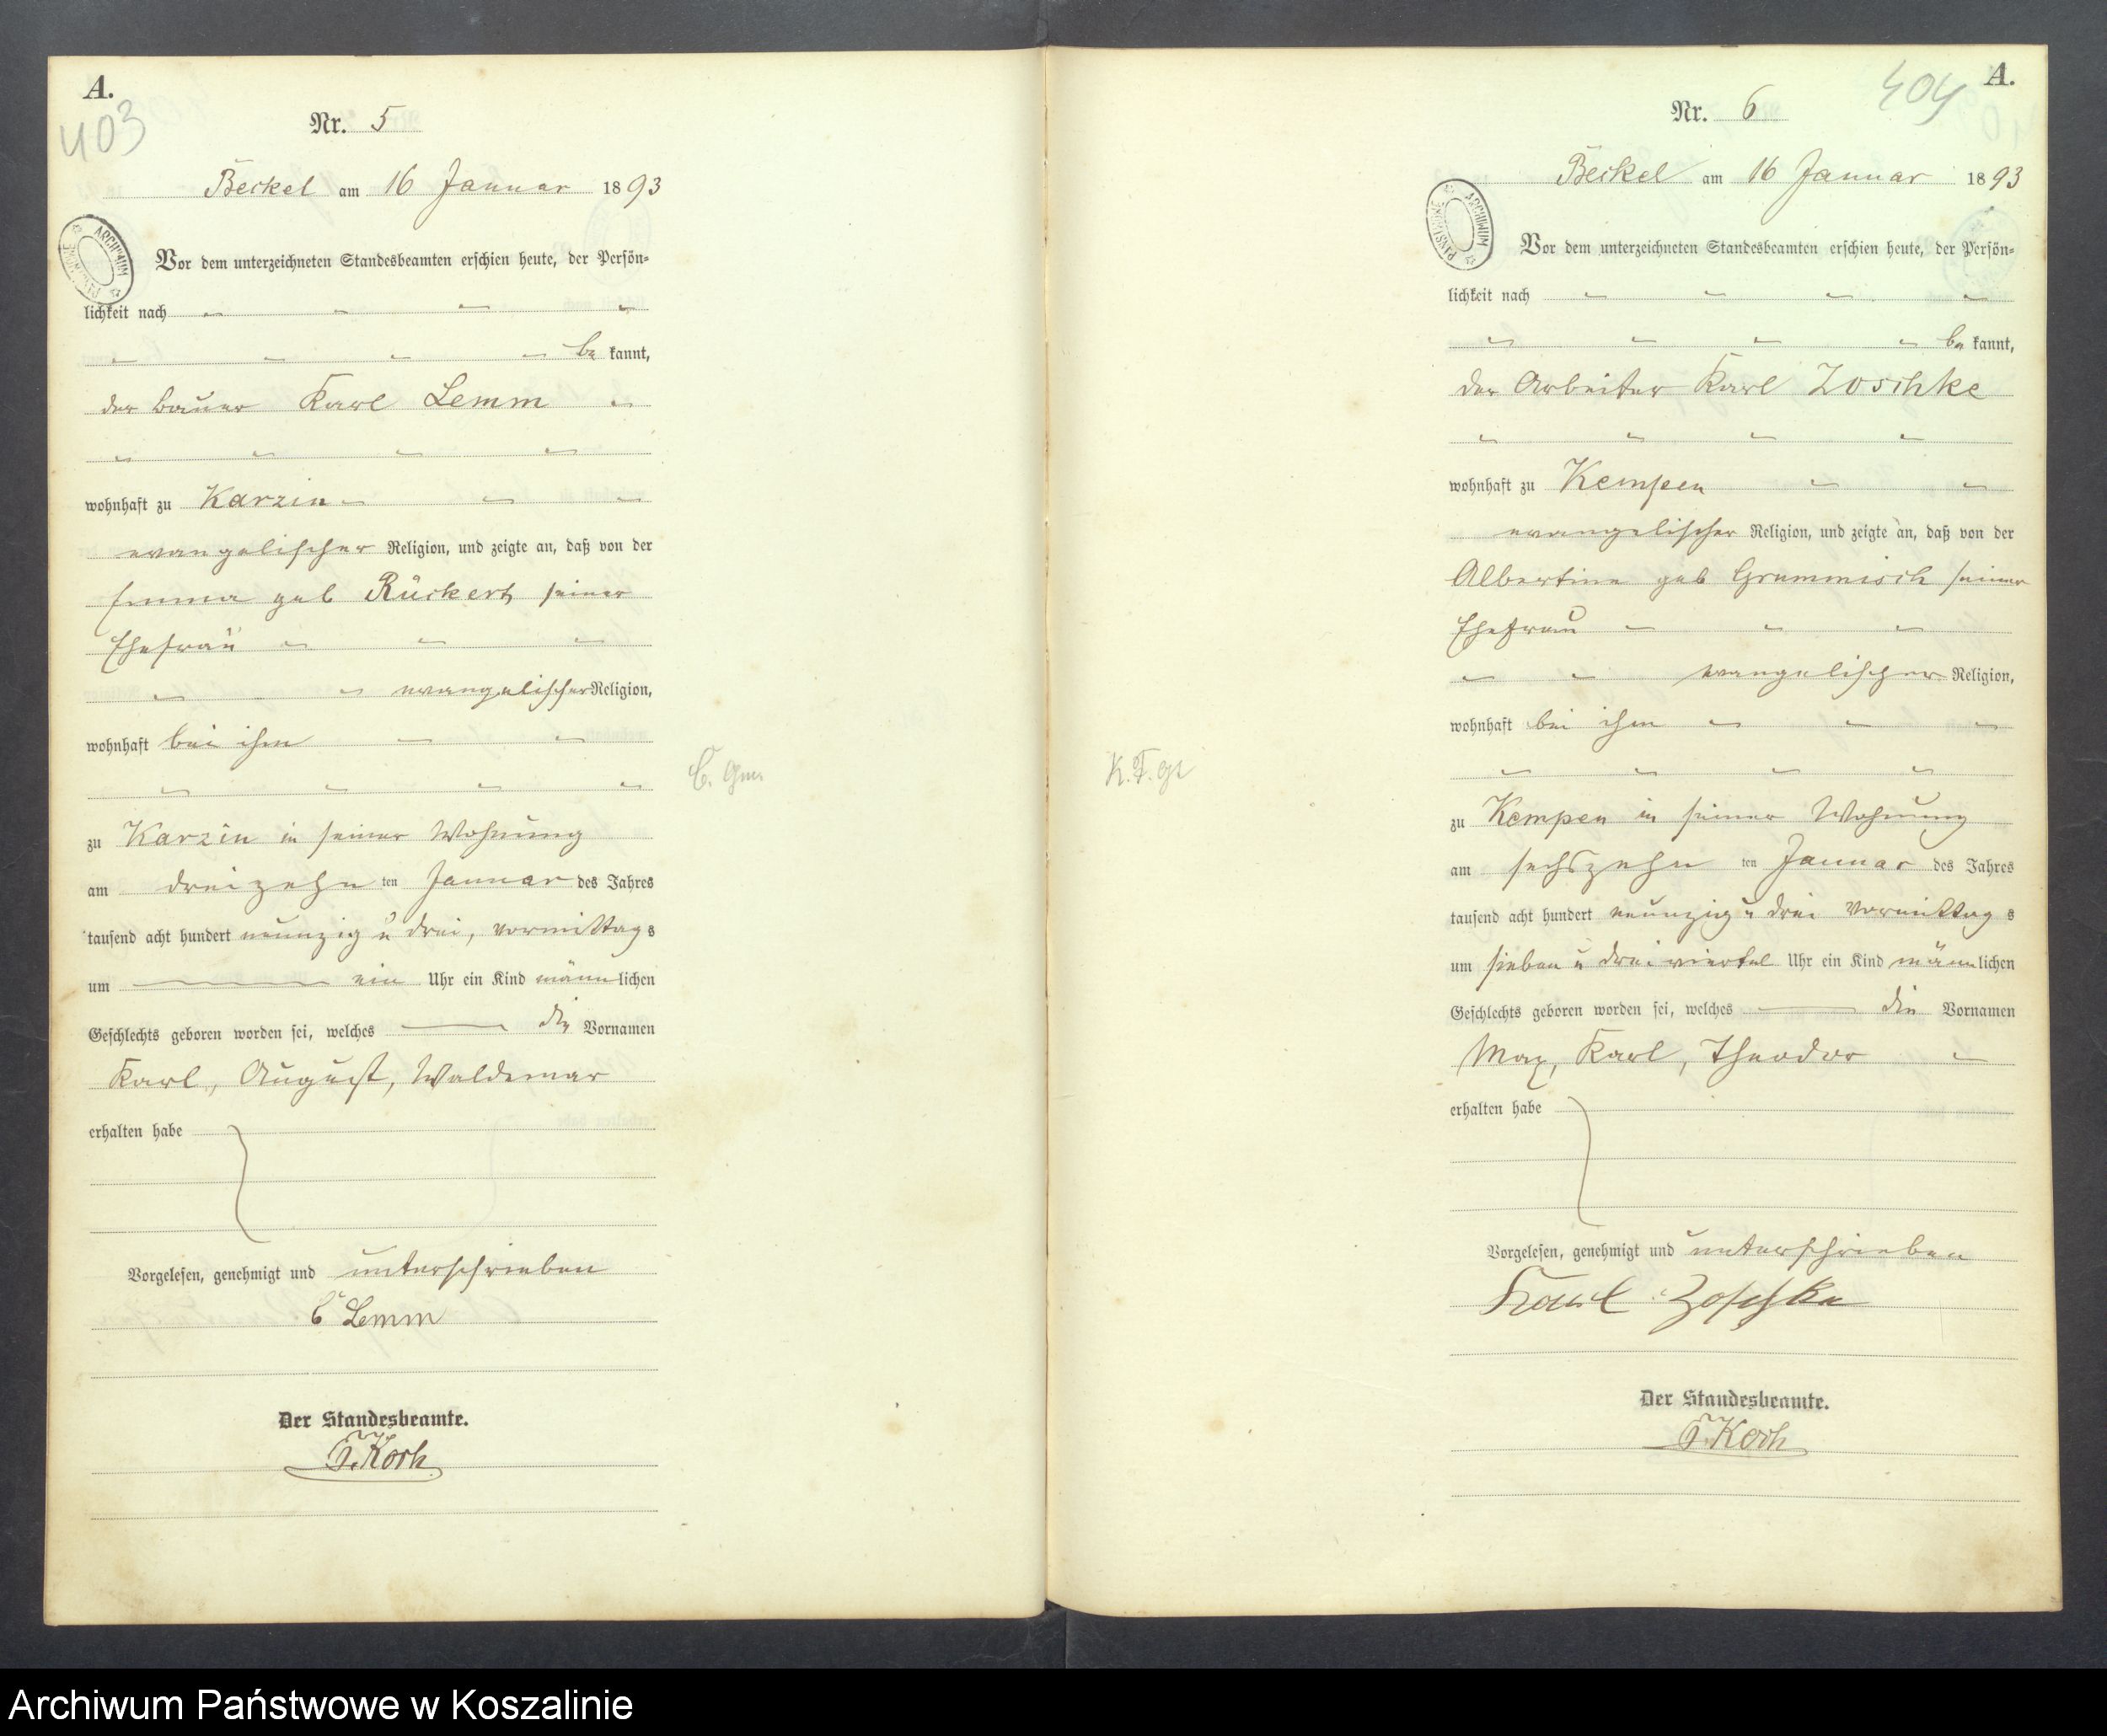 A.
403
Nr. 5
Beckel am 16 Januar 1893
ARCHIWUM
Vor dem unterzeichneten Standesbeamten erschien heute, der Persön=
lichkeit nach
be kannt,
der Bauer Karl Lemm
wohnhaft zu Karzin
evangelischer Religion, und zeigte an, daß von der
Emma geb Rückert seiner
Ehefrau
evangelischer Religion,
wohnhaft bei ihm
zu Karzin in seiner Wohnung
am dreizehn ten Januar des Jahres
tausend acht hundert neunzig u drei, vormittags
um ein Uhr ein Kind männlichen
Geschlechts geboren worden sei, welches die Vornamen
Karl, August, Waldemar
erhalten habe
Vorgelesen, genehmigt und unterschrieben
C Lemm
Der Standesbeamte.
F. Koch
A.
404
Nr. 6
Beckel am 16 Januar 1893
ARCHIWUM
Vor dem unterzeichneten Standesbeamten erschien heute, der Persön=
lichkeit nach
be kannt,
der Arbeiter Karl Zoschke
wohnhaft zu Kempen
evangelischer Religion, und zeigte an, daß von der
Albertine geb Grummisch seiner
Ehefrau
evangelischer Religion,
wohnhaft bei ihm
zu Kempen in seiner Wohnung
am sechszehn ten Januar des Jahres
tausend acht hundert neunzig u drei vormittags
um sieben u dreiviertel Uhr ein Kind männlichen
Geschlechts geboren worden sei, welches die Vornamen
Max, Karl, Theodor
erhalten habe
Vorgelesen, genehmigt und unterschrieben
Karl Zoschke
Der Standesbeamte.
F. Koch
Archiwum Państwowe w Koszalinie